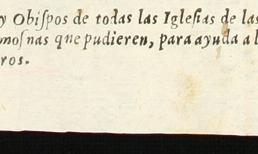 y Obiſpos de todas las Igleſias de las
moſnas que pudieren, para ayuda a l
ros.